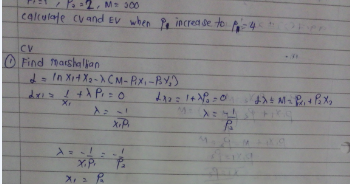 P₁=1, P₂=2, M=500
calculate CV and EV when P₂ increase to P₂=4
CV
① Find marshallian
L = ln X₁ + X₂ - λ(M - P₁X₁ - P₂X₂)
Lx₁ = 1/X₁ + λP₁ = 0 Lx₂ = 1 + λP₂ = 0 Lλ = M = P₁X₁ + P₂X₂
λ = -1/X₁P₁ λ = -1/P₂
λ = -1/X₁P₁ = -1/P₂
X₁ = P₂